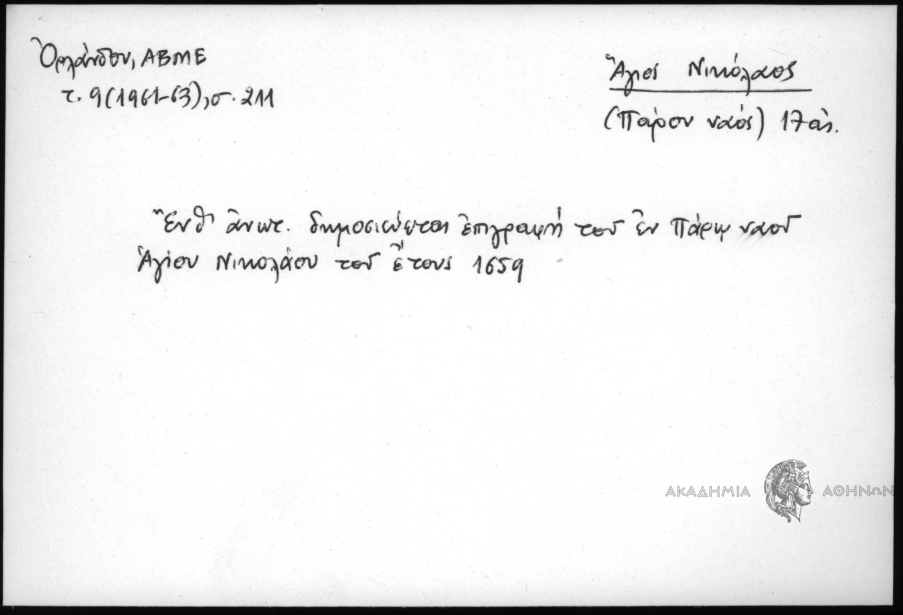 Ὀρλάνδου, ΑΒΜΕ
τ. 9 (1961-63), σ. 211
Ἅγιος Νικόλαος
(Πάρου ναός) 17 αἰ.
Ἔνθ' ἀνωτ. δημοσιεύεται ἐπιγραφή τοῦ ἐν Πάρῳ ναοῦ
Ἁγίου Νικολάου τοῦ ἔτους 1659
ΑΚΑΔΗΜΙΑ ΑΘΗΝΩΝ